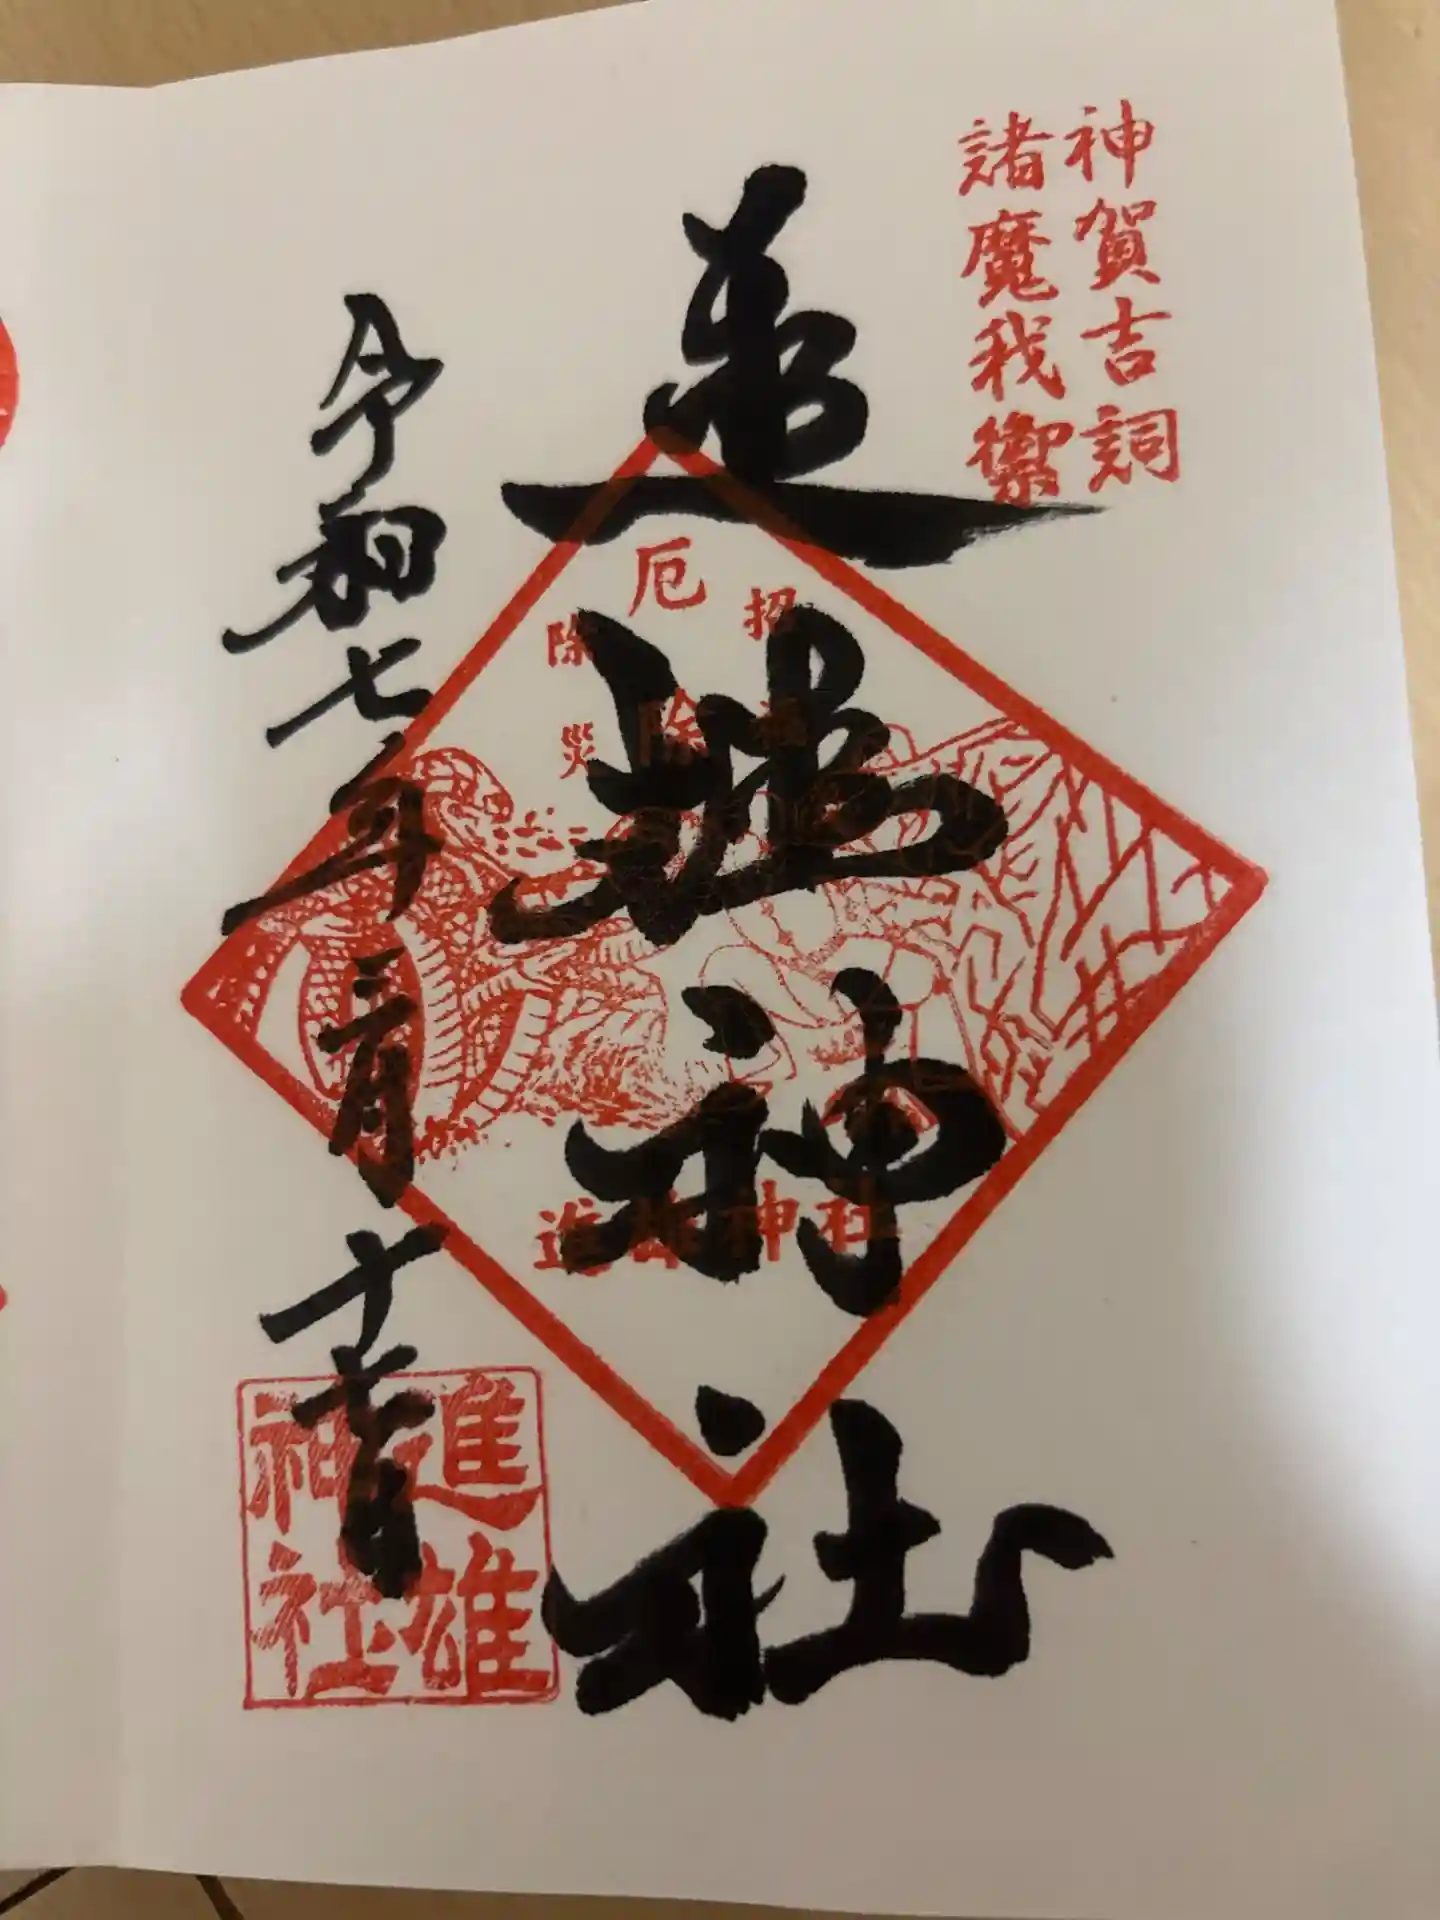 神賀吉詞
諸魔我禦
進雄神社
招福
厄除
除災
進雄神社
令和七年三月十七日
進雄
神社